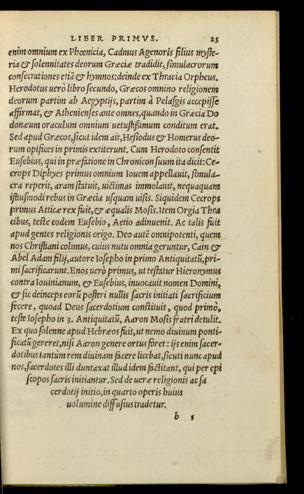 LIBER PRIMVS. 25
enim omnium ex Phœnicia, Cadmus Agenoris filius myste-
ria & solennitates deorum Græciæ tradidit, simulacrorum
consecrationes etiã & hymnos; deinde ex Thracia Orpheus.
Herodotus uerò libro secundo, Græcos omnino religionem
deorum partim ab Aegyptijs, partim à Pelasgis accepisse
affirmat, & Athenienses ante omnes, quando in Græcia Do
donæum oraculum omnium uetustissimum conditum erat.
Sed apud Græcos, sicut idem ait, Hesiodus & Homerus deo-
rum opifices in primis extiterunt. Cum Herodoto consentit
Eusebius, qui in præfatione in Chronicon suum ita dicit: Ce-
crops Diphyes primus omnium Iouem appellauit, simula-
cra reperit, aram statuit, uictimas immolauit, nequaquam
istiusmodi rebus in Græcia usquam uisis. Siquidem Cecrops
primus Atticæ rex fuit, & æqualis Mosis. Item Orgia Thra
cibus, teste eodem Eusebio, Aetio adinuenit. Ac talis fuit
apud gentes religionis origo. Deo autē omnipotenti, quem
nos Christiani colimus, cuius nutu omnia geruntur, Cain &
Abel Adam filij, autore Iosepho in primo Antiquitatũ, pri-
mi sacrificarunt. Enos uerò primus, ut testatur Hieronymus
contra Iouinianum, & Eusebius, inuocauit nomen Domini,
& sic deinceps eorũ posteri nullis sacris initiati sacrificium
fecere, quoad Deus sacerdotium constituit, quod primò,
teste Iosepho in 3. Antiquitatũ, Aaron Mosis fratri detulit.
Ex quo solenne apud Hebræos fuit, ut nemo diuinum ponti-
ficatũ gereret, nisi Aaron genere ortus foret: ijs enim sacer-
dotibus tantùm rem diuinam facere licebat, sicuti nunc apud
nos, sacerdotes illi duntaxat illud idem factitant, qui per epi
scopos sacris initiantur. Sed de ueræ religionis ac sa
cerdotij initio, in quarto operis huius
uolumine diffusius tradetur.
b 5